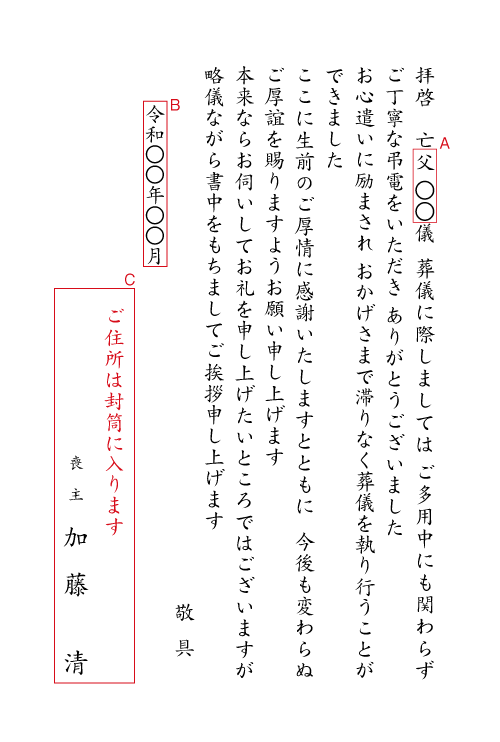 拝啓 亡父 〇〇儀 葬儀に際しましては ご多用中にも関わらず
ご丁寧な弔電をいただき ありがとうございました
お心遣いに励まされ おかげさまで滞りなく葬儀を執り行うことが
できました
ここに生前のご厚情に感謝いたしますとともに 今後も変わらぬ
ご厚誼を賜りますようお願い申し上げます
本来ならお伺いしてお礼を申し上げたいところではございますが
略儀ながら書中をもちましてご挨拶申し上げます
敬具
令和〇〇年〇〇月
ご住所は封筒に入ります
喪主 加藤 清
A
B
C